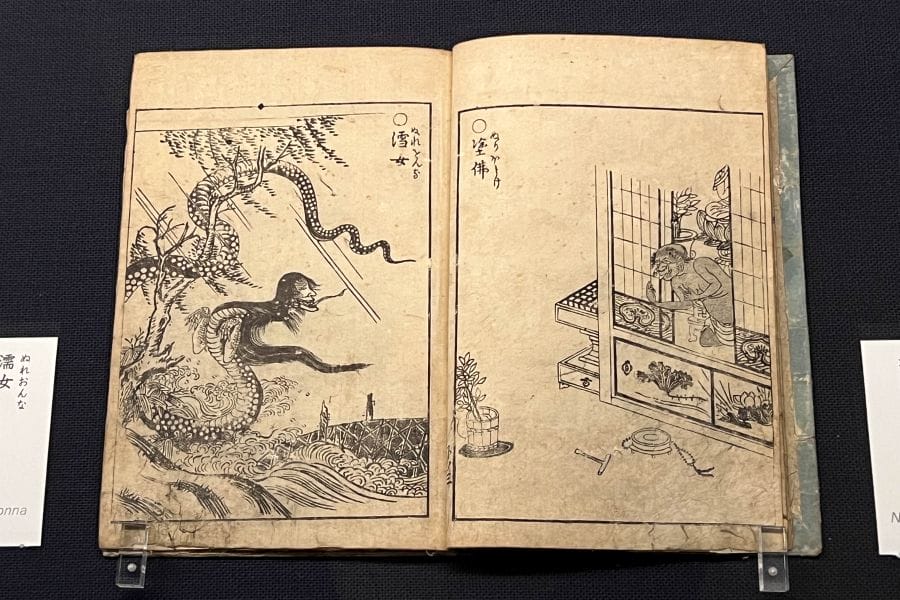 ○塗佛
ぬりぼとけ
○濡女
ぬれをんな
ぬれおんな
濡女
onna
N